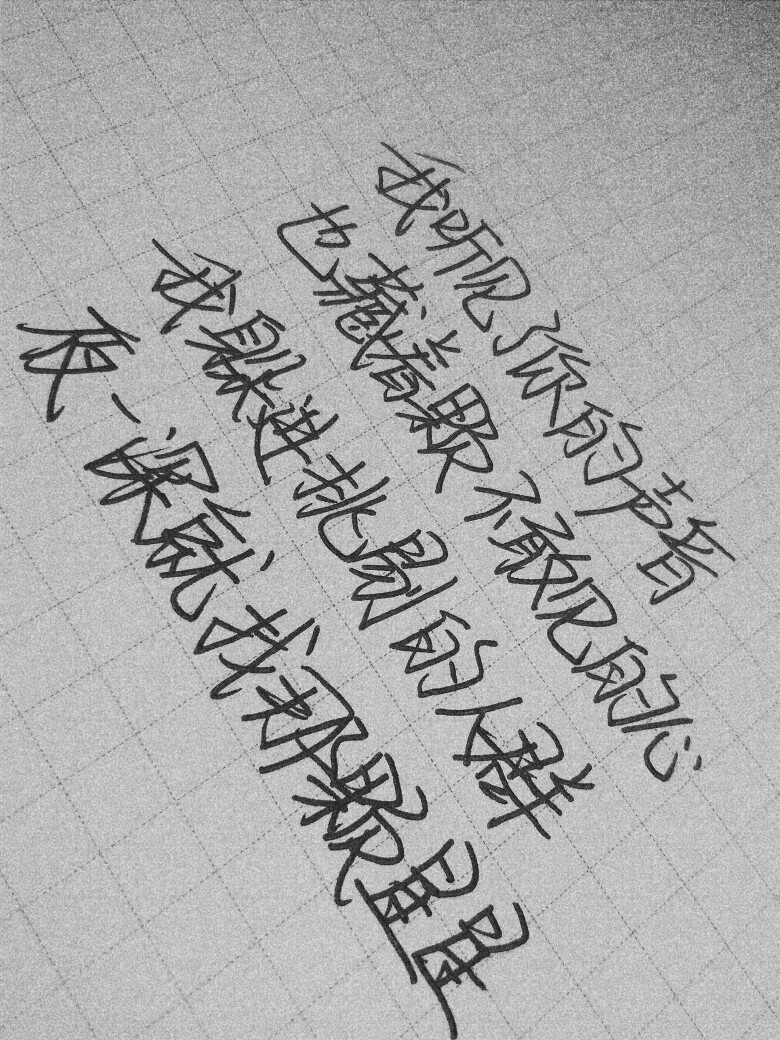 我听见了你的声音
也藏着颗不敢见的心
我躲进挑剔的人群
夜一深就找那颗星星